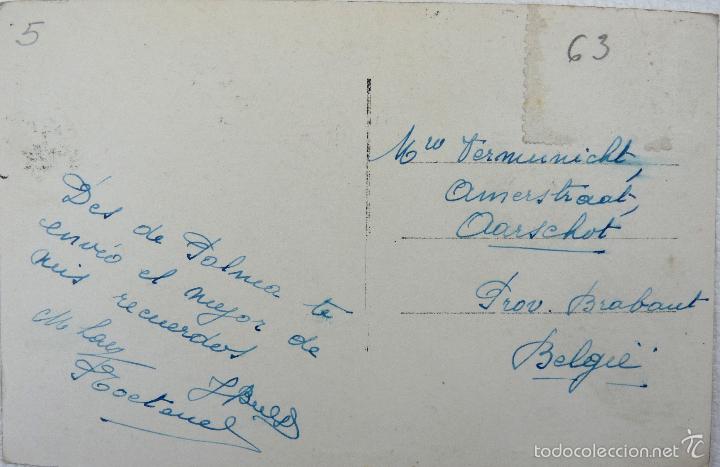 5
63
Des de Palma te
envío el mejor de
mis recuerdos
Mrw Vermunicht,
Amerstraat,
Aarschot,
Prov. Brabant
België
todocoleccion.net